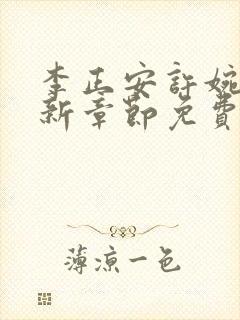 李正安許婉
新章節免費
薄涼一色